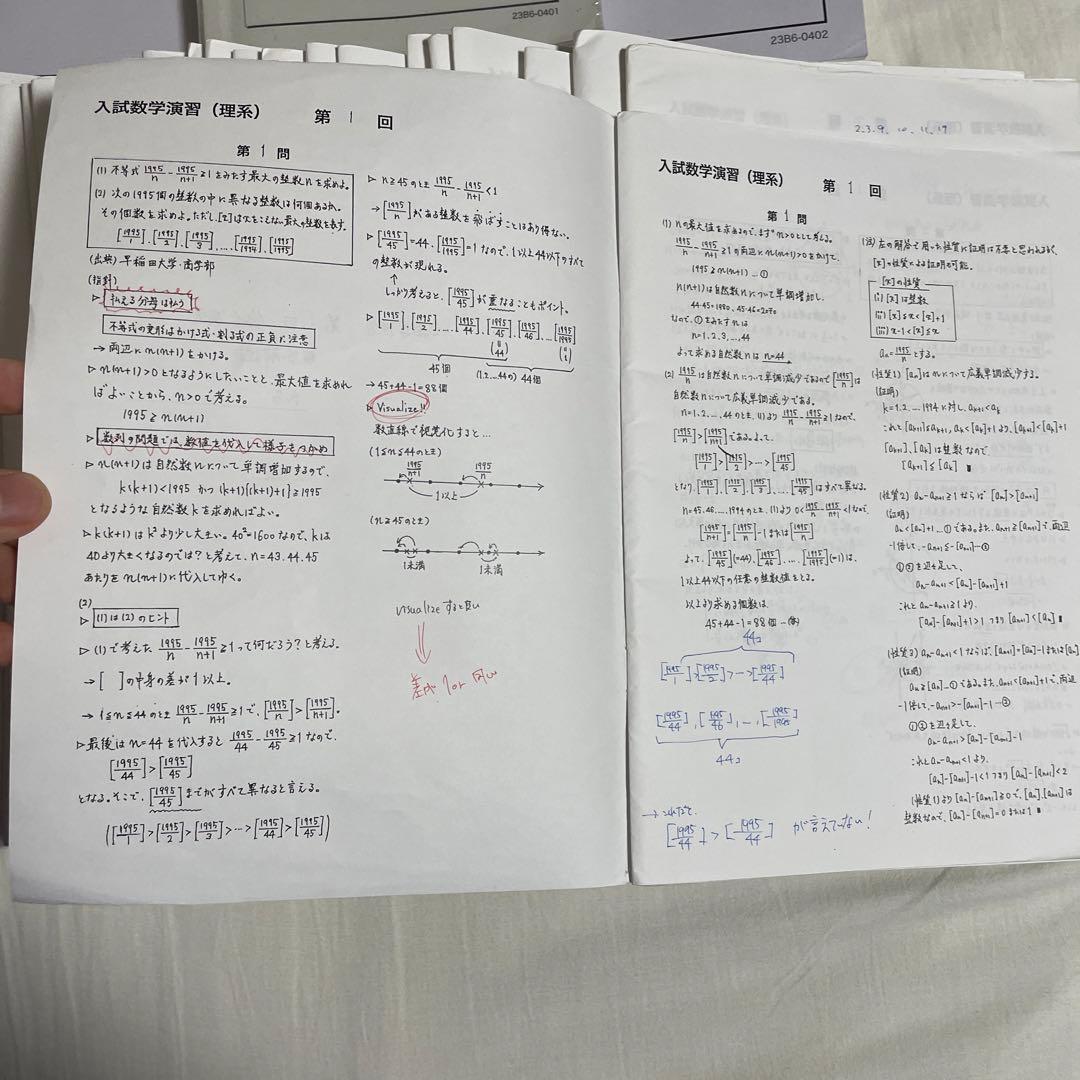 23B6-0401
23B6-0402
入試数学演習（理系） 第 1 回
第 1 問
(1) 不等式 1995/n - 1995/(n+1) ≧ 1 をみたす最大の整数 n を求めよ。
(2) 次の1995個の整数の中に異なる整数は何個あるか。
その個数を求めよ。ただし、[x]はxをこえない最大の整数を表す。
[1995/1], [1995/2], [1995/3], ..., [1995/1994], [1995/1995]
(出典) 早稲田大学・商学部
(指針)
▷ 払える分母は払う
不等式の変形はかける式・割る式の正負に注意
→ 両辺に n(n+1) をかける。
▷ n(n+1)>0 となるようにしたいことと、最大値を求めれ
ばよいことから、n>0 で考える。
1995 ≧ n(n+1)
▷ 数列の問題では、数値を代入して様子をつかめ
▷ n(n+1) は自然数 n について単調増加するので、
k(k+1)<1995 かつ (k+1){(k+1)+1}≧1995
となるような自然数 k を求めればよい。
▷ k(k+1) は k² より少し大きい。40²=1600 なので、k は
40より大きくなるのでは? と考えて、n=43, 44, 45
あたりを n(n+1) に代入してゆく。
(2)
▷ (1)は(2)のヒント
▷ (1)で考えた 1995/n - 1995/(n+1) ≧ 1 って何だろう? と考える。
→ [ ] の中身の差が1以上。
→ 1≦n≦44 のとき 1995/n - 1995/(n+1) ≧ 1 で、[1995/n] > [1995/(n+1)]。
▷ 最後は n=44 を代入すると 1995/44 - 1995/45 ≧ 1 なので、
[1995/44] > [1995/45]
となる。そこで、[1995/45] までがすべて異なると言える。
([1995/1] > [1995/2] > [1995/3] > ... > [1995/44] > [1995/45])
▷ n≧45 のとき 1995/n - 1995/(n+1) < 1
→ [1995/n] がある整数を飛ばすことはあり得ない。
▷ [1995/45]=44, [1995/1995]=1 なので、1以上44以下のすべて
の整数が現れる。
↑
しっかり考えると、[1995/45] が重なることもポイント。
▷ [1995/1], [1995/2], ... [1995/44], [1995/45], [1995/46], ... [1995/1995]
(44) (1)
45個 (1, 2, ... 44 の) 44個
→ 45+44-1=88個
▷ Visualize!!
数直線で視覚化すると...
(1≦n≦44のとき)
1995/(n+1) 1995/n
1以上
(n≧45のとき)
1未満 1未満
visualizeすると良い
入試数学演習（理系） 第 1 回
第 1 問
(1) nの最大値を求めるので、まず n>0 として考える。
1995/n - 1995/(n+1) ≧ 1 の両辺に n(n+1)>0 をかけて、
1995 ≧ n(n+1) ...①
n(n+1) は自然数 n について単調増加し、
44・45=1980, 45・46=2070
なので、①をみたす n は
n=1, 2, 3, ..., 44
よって求める自然数 n は n=44
(2) 1995/n は自然数 n について単調減少であるので [1995/n] は
自然数 n について広義単調減少である。
n=1, 2, ..., 44 のとき、(1)より 1995/n - 1995/(n+1) ≧ 1 なので、
[1995/n] > [1995/(n+1)] である。よって、
[1995/1] > [1995/2] > ... > [1995/45]
となり、[1995/1], [1995/2], [1995/3], ... [1995/45] はすべて異なる。
n=45, 46, ..., 1994 のとき、(1)より 0 < 1995/n - 1995/(n+1) < 1 なので、
[1995/(n+1)] = [1995/n] - 1 または [1995/n]
よって、[1995/45] (=44), [1995/46], ..., [1995/1995] (=1) は、
1以上44以下の任意の整数値をとる。
以上より求める個数は
45+44-1=88個 …(答)
44コ
[1995/1] > [1995/2] > ... > [1995/44]
[1995/44], [1995/46], ..., [1995/1995]
44コ
[1995/44] > [1995/44] が言えてない!
(注) 左の解答で用いた性質に証明は不要と思われるが、
[x]の性質による証明も可能。
[x]の性質
(i) [x]は整数
(ii) [x]≦x<[x]+1
(iii) x-1<[x]≦x
an=1995/n とする。
(性質1) [an]はnについて広義単調減少する。
(証明)
k=1, 2, ... 1994 に対し、ak+1<ak
これと [ak+1]≦ak+1, ak<[ak]+1 より、[ak+1]<[ak]+1
[ak+1], [ak] は整数なので、
[ak+1]≦[ak] ■
(性質2) an-an+1≧1 ならば [an]>[an+1]
(証明)
an<[an]+1 ...① である。また、an+1≧[an+1] で、両辺
-1倍して、-an+1≦-[an+1] ...②
①②を辺々足して、
an-an+1<[an]-[an+1]+1
これと an-an+1≧1 より、
[an]-[an+1]+1>1 つまり [an+1]<[an] ■
(性質3) an-an+1<1 ならば、[an+1]=[an]-1 または [an]
(証明)
an≧[an] ...① である。また、an+1<[an+1]+1 で、両辺
-1倍して、-an+1>-[an+1]-1 ...②
①②を辺々足して、
an-an+1>[an]-[an+1]-1
これと an-an+1<1 より、
[an]-[an+1]-1<1 つまり [an]-[an+1]<2
(性質1)より [an]-[an+1]≧0 で、[an], [an+1] は
整数なので、[an]-[an+1]=0 または 1 ■